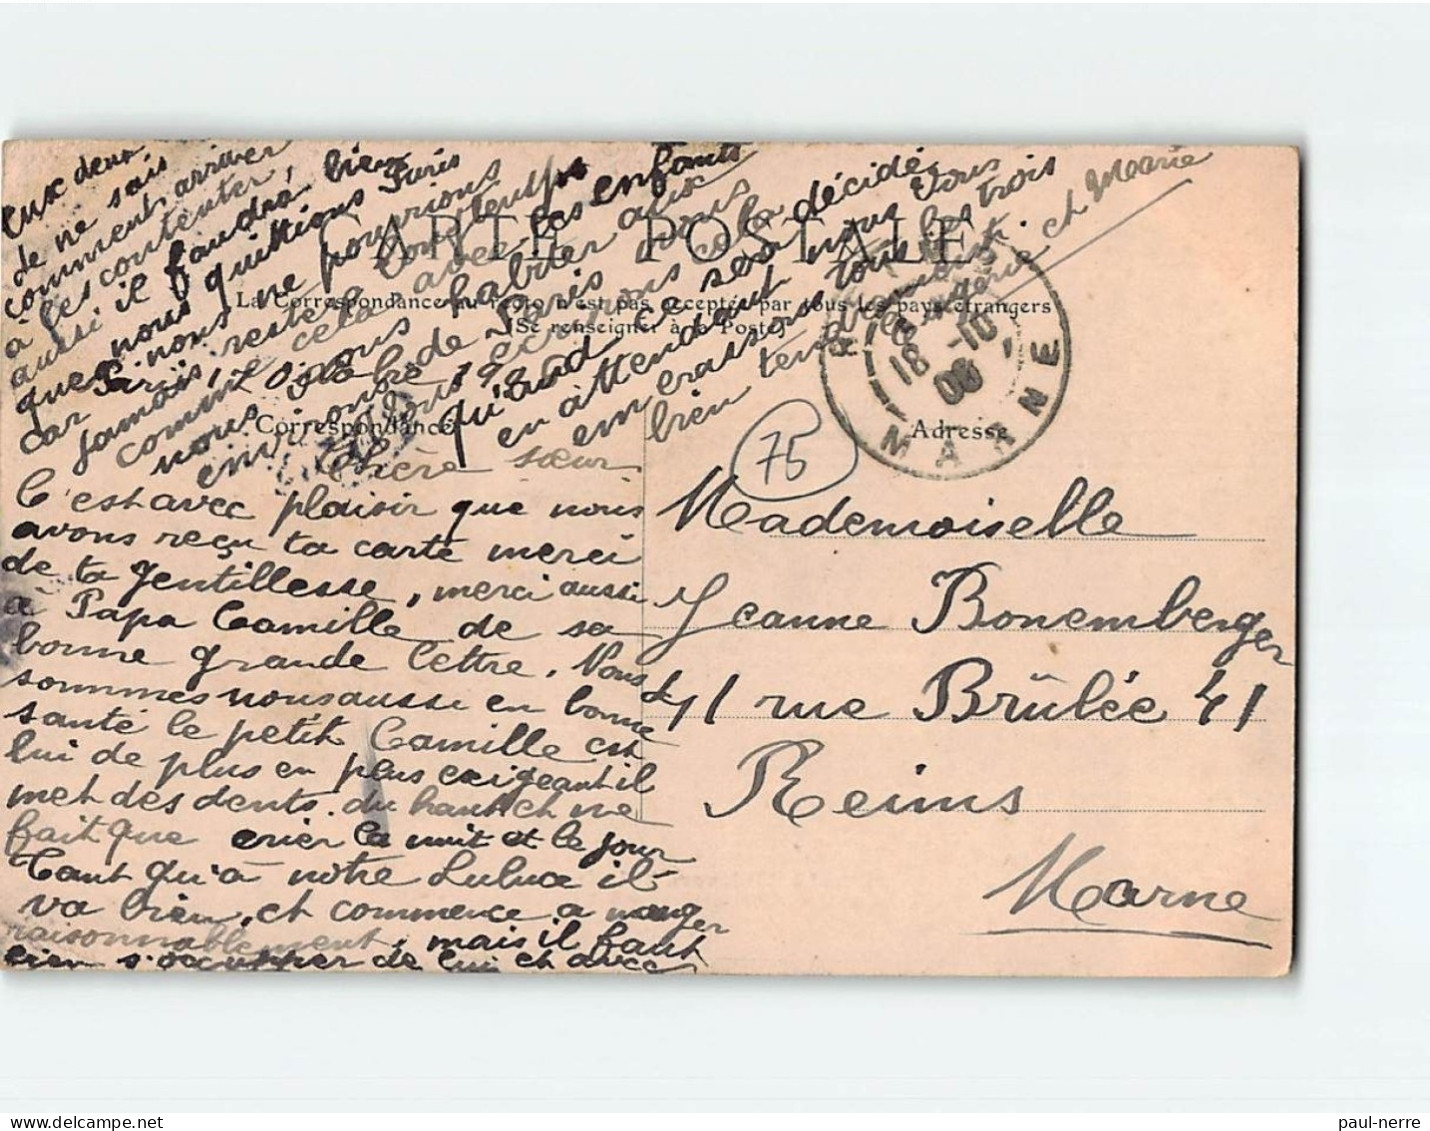 CARTE POSTALE
La Correspondance au recto n'est pas acceptée par tous les pays étrangers
(Se renseigner à la Poste)
Correspondance
Adresse
Chère sœur
C'est avec plaisir que nous
avons reçu ta carte merci
de ta gentillesse, merci aussi
a Papa Camille de sa
bonne grande lettre. Nous
sommes nous aussi en bonne
santé le petit Camille est
lui de plus en plus exigeant il
met des dents du haut et ne
fait que crier la nuit et le jour
Tant qu'à notre Lulu il
va bien, et commence a manger
raisonnablement, mais il faut
bien s'occuper de lui et avec
eux deux
de ne sais
comment arriver
à les contenter,
aussi il faudra bien
que nous quittions Paris
car nous ne pourrions
jamais rester longtemps
comme cela avec les enfants
nous irons habiter aux
environs de Paris nous
vous écrirons cela
quand ce sera décidé
en attendant nous vous
embrassons tous les trois
bien tendrement.
et Marie
75
18 -10
08
MARNE
Mademoiselle
Jeanne Bonemberger
41 rue Brûlée 41
Reims
Marne
paul-nerre